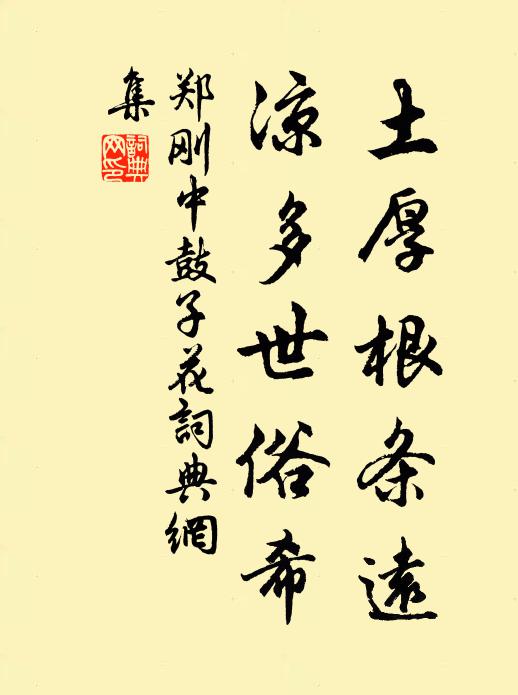 土厚根条遠
凉多世俗希
郑刚中鼓子花詞典網
集
詞典
网印